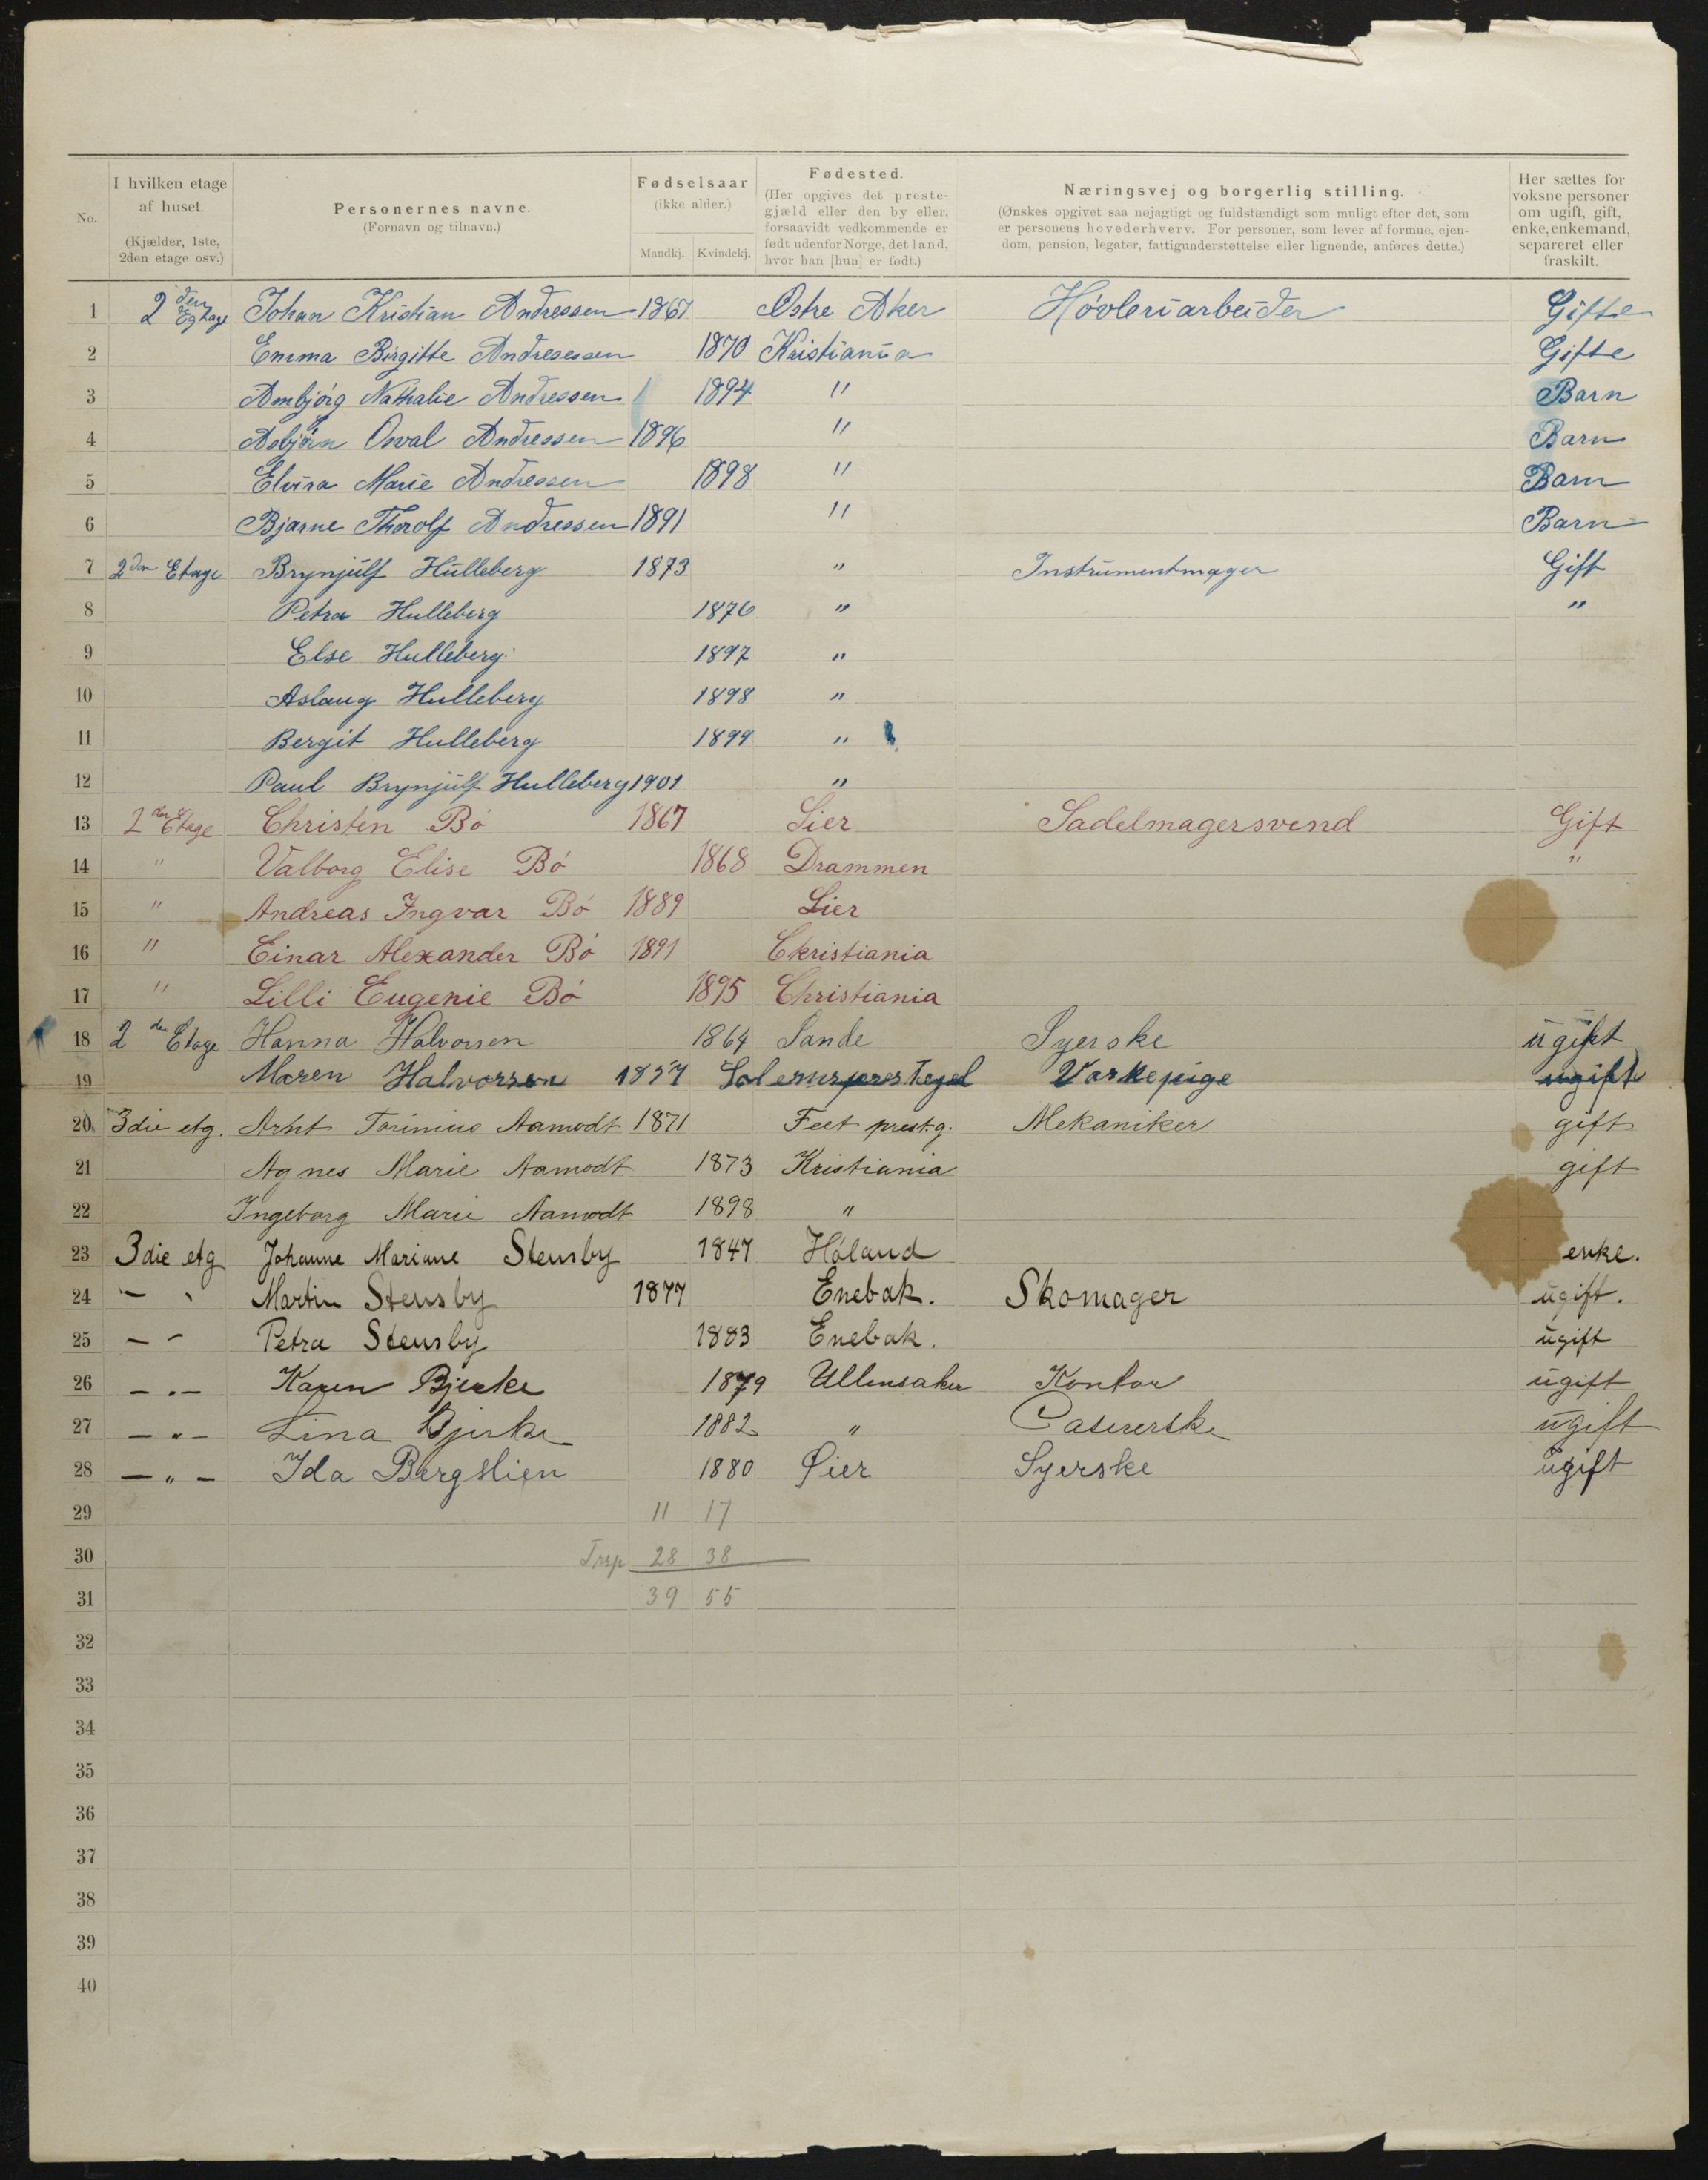 No.
I hvilken etage af huset. (Kjælder, 1ste, 2den etage osv.)
Personernes navne. (Fornavn og tilnavn.)
Fødselsaar (ikke alder.) Mandkj. Kvindekj.
Fødested. (Her opgives det prestegjæld eller den by eller, forsaavidt vedkommende er født udenfor Norge, det land, hvor han [hun] er født.)
Næringsvej og borgerlig stilling. (Ønskes opgivet saa nøjagtigt og fuldstændigt som muligt efter det, som er personens hovederhverv. For personer, som lever af formue, ejendom, pension, legater, fattigunderstøttelse eller lignende, anføres dette.)
Her sættes for voksne personer om ugift, gift, enke, enkemand, separeret eller fraskilt.
1 2 den Johan Kristian Andressen 1867 Ostre Aker Høvleriarbeider Gifte
2 Emma Birgitte Andresessen 1870 Kristiania Gifte
3 Nathalie Andressen 1894 " Barn
4 Asbjørn Osval Andressen 1896 " Barn
5 Elvira Marie Andressen 1898 " Barn
6 Bjarne Thorolf Andressen 1891 " Barn
7 2den Etage Brynjulf Hulleberg 1873 " Instrumentmager Gift
8 Petra Hulleberg 1876 " "
9 Else Hulleberg 1897 "
10 Aslaug Hulleberg 1898 "
11 Bergit Hulleberg 1899 "
12 Paul Brynjulf Hulleberg 1901 "
13 2den Etage Christen Bó 1867 Lier Sadelmagersvend Gift
14 " Valborg Elise Bó 1868 Drammen "
15 " Andreas Ingvar Bó 1889 Lier
16 " Einar Alexander Bó 1891 Ckristiania
17 " Lilli Eugenie Bó 1895 Christiania
18 2 den Etage Hanna Halvorsen 1864 Sande Syerske ugift
19 Maren Halvorsen 1857 Vaskepige ugift
20 3die etg. Arnt Aamodt 1871 Feet prest.g. Mekaniker gift
21 Agnes Marie Aamodt 1873 Kristiania gift
22 Ingeborg Marie Aamodt 1898 "
23 3die etg Johanne Mariane Stensby 1847 Hóland enke.
24 Martin Stensby 1877 Enebak. Skomager ugift.
25 Petra Stensby 1883 Enebak. ugift
26 — " — Karen Bjerke 1879 Ullensaker Kontor ugift
27 — " — Lina Bjerke 1882 " Casererske ugift
28 — " — Ida Bergslien 1880 Øier Syerske ugift
29 11 17
30 Trsp 28 38
31 39 55
32
33
34
35
36
37
38
39
40